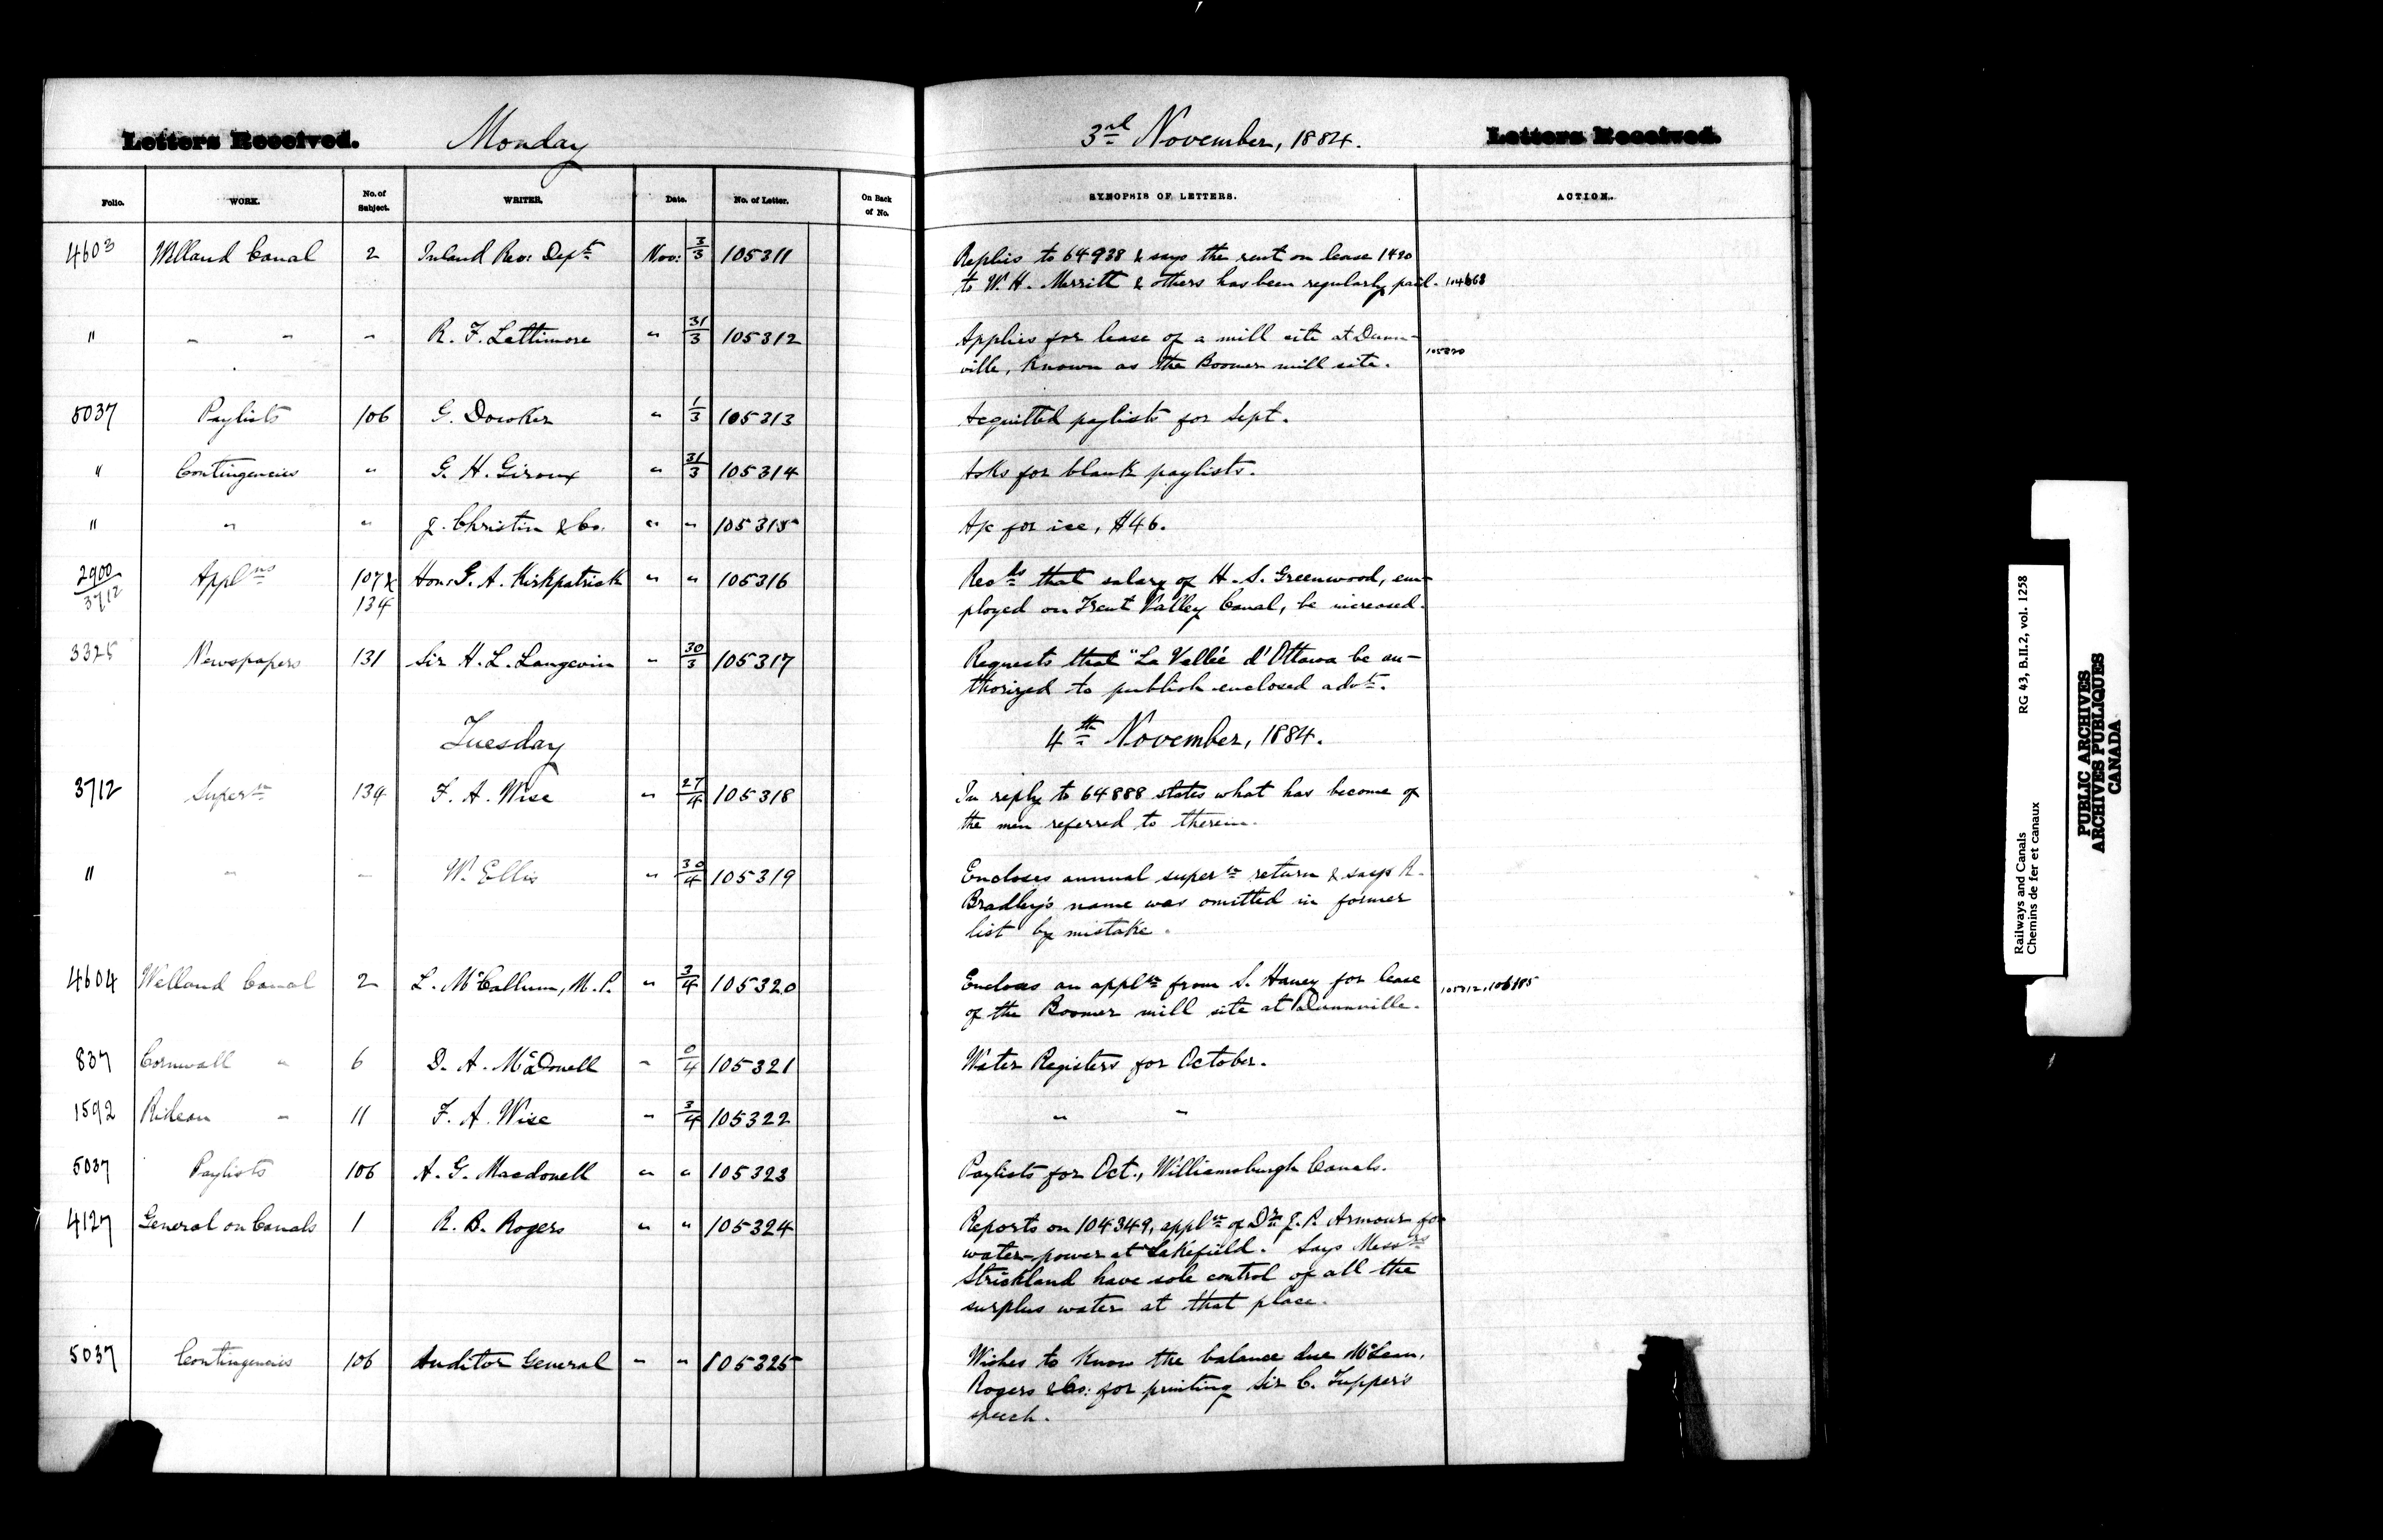 Letters Received. Monday 3rd November, 1884. Letters Received.
Folio. WORK. No. of Subject. WRITER. Date. No. of Letter. On Back of No. SYNOPSIS OF LETTERS. ACTION.
4603 Welland Canal 2 Inland Rev: Dept Nov: 3/3 105311 Replies to 64938 & says the rent on lease 1420
to W. H. Merritt & others has been regularly paid.
" " " " R. F. Lattimore " 31/3 105312 Applies for lease of a mill site at Dunn-
ville, known as the Boomer mill site. 105320
5037 Paylists 106 G. Dowker " 1/3 105313 Acquitted paylists for Sept.
" Contingencies " G. H. Giroux " 31/3 105314 Asks for blank paylists.
" " " J. Christin & Co. " " 105315 A/c for ice, $46.
2900/3712 Applns 107 & 134 Hon: G. A. Kirkpatrick " " 105316 Recds that salary of H. S. Greenwood, em-
ployed on Trent Valley Canal, be increased.
3325 Newspapers 131 Sir H. L. Langevin " 30/3 105317 Requests that "La Vallée d'Ottawa be au-
thorized to publish enclosed advt.
Tuesday 4th November, 1884.
3712 Supern 134 F. A. Wise " 27/4 105318 In reply to 64888 states what has become of
the men referred to therein.
" " " W. Ellis " 30/4 105319 Encloses annual supern return & says R.
Bradley's name was omitted in former
list by mistake.
4604 Welland Canal 2 L. McCallum, M.P. " 3/4 105320 Encloses an appln from S. Haney for lease 105312, 106185
of the Boomer mill site at Dunnville.
837 Cornwall " 6 D. A. McDonell " 0/4 105321 Water Registers for October.
1592 Rideau " 11 F. A. Wise " 3/4 105322 " "
5037 Paylists 106 A. G. Macdonell " " 105323 Paylists for Oct., Williamsburgh Canals.
4127 General on Canals 1 R. B. Rogers " " 105324 Reports on 104349, appln of Dr. E. P. Armour for
water-power at Lakefield. Says Messrs
Strickland have sole control of all the
surplus water at that place.
5037 Contingencies 106 Auditor General " " 105325 Wishes to know the balance due McLean,
Rogers & Co: for printing Sir C. Tupper's
speech.
Railways and Canals RG 43, B.II.2, vol. 1258
Chemins de fer et canaux
PUBLIC ARCHIVES
ARCHIVES PUBLIQUES
CANADA